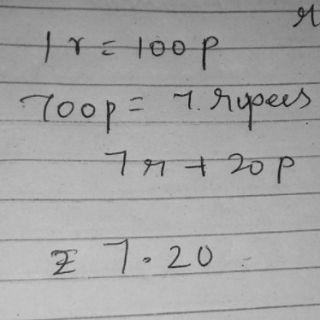 r
1 r = 100 p
700 p = 7. rupees
7 r + 20 p
₹ 7.20